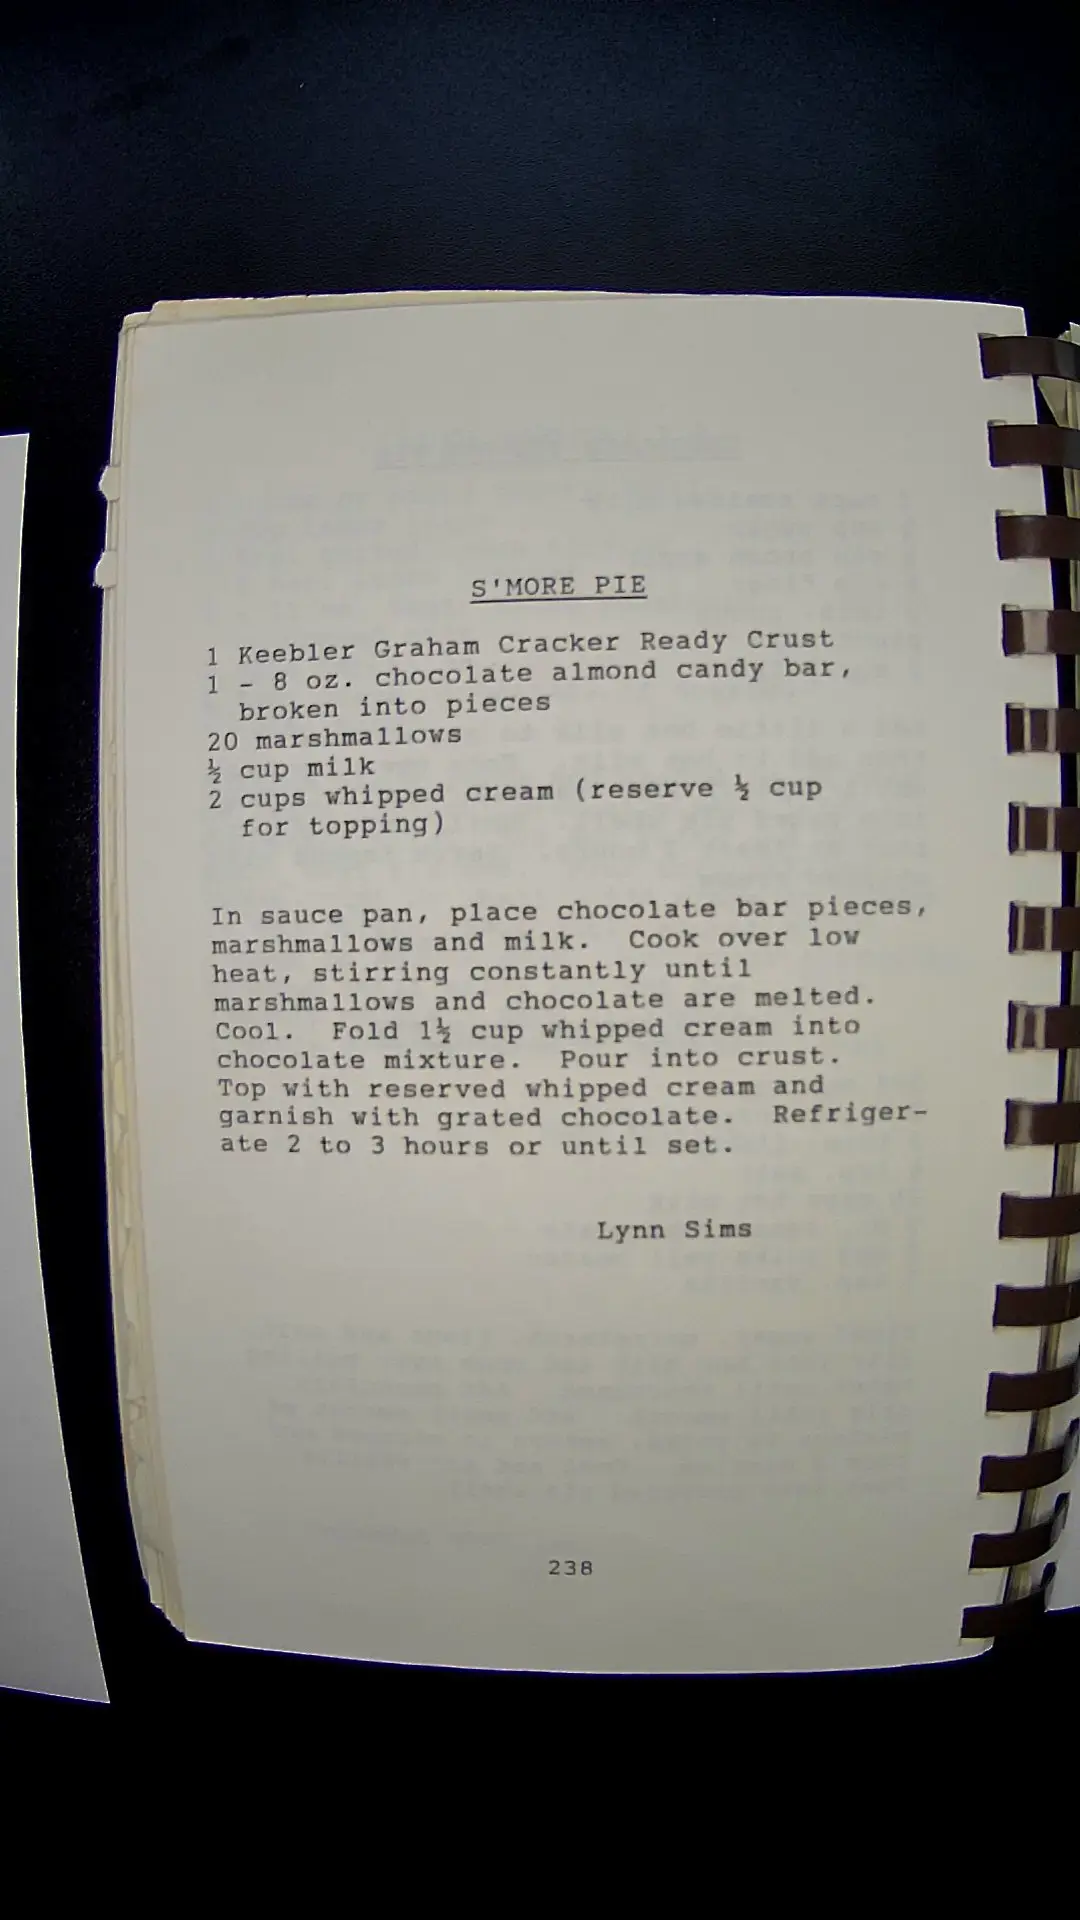 S'MORE PIE
1 Keebler Graham Cracker Ready Crust
1 - 8 oz. chocolate almond candy bar,
broken into pieces
20 marshmallows
½ cup milk
2 cups whipped cream (reserve ½ cup
for topping)
In sauce pan, place chocolate bar pieces,
marshmallows and milk. Cook over low
heat, stirring constantly until
marshmallows and chocolate are melted.
Cool. Fold 1½ cup whipped cream into
chocolate mixture. Pour into crust.
Top with reserved whipped cream and
garnish with grated chocolate. Refriger-
ate 2 to 3 hours or until set.
Lynn Sims
238